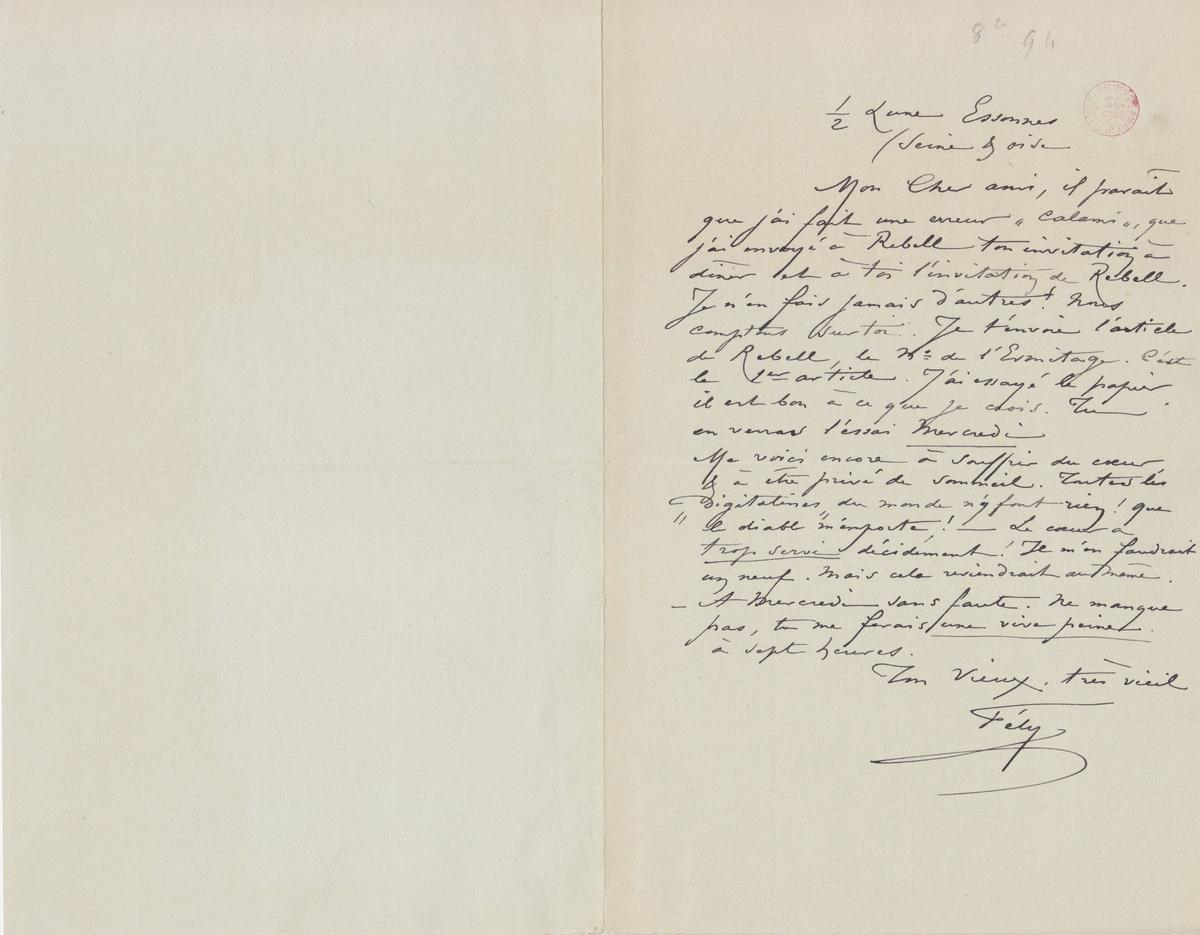 8bre 94
1/2 Lune Essonnes
/Seine & oise
Mon Cher ami, il parait
que j'ai fait une erreur „ Calami „, que
j'ai envoyé à Rebell ton invitation à
dîner et à toi l'invitation de Rebell.
Je n'en fais jamais d'autres! Nous
comptons sur toi. Je t'envoie l'article
de Rebell, le No de l'Ermitage. C'est
le 1er article. J'ai essayé le papier
il est bon à ce que je crois. Tu
en verras l'essai Mercredi
Me voici encore à souffrir du cœur
& à être privé de sommeil. Toutes les
„ Digitalines „ du monde n'y font rien! que
le diable m'emporte! — Le cœur a
trop servi décidément! Il m'en faudrait
un neuf. Mais cela reviendrait au même.
– A Mercredi sans faute. Ne manque
pas, tu me ferais une vive peine.
à sept heures.
Ton Vieux. très vieil
Fély